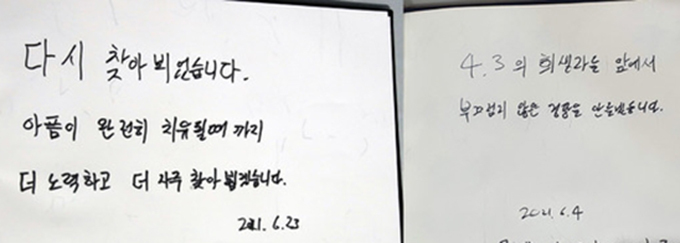 다시 찾아 뵈었습니다.
아픔이 완전히 치유될때 까지
더 노력하고 더 자주 찾아 뵙겠습니다.
2021. 6. 23
4.3의 희생자들 앞에서
부끄럽지 않은 정당을 만들겠습니다.
2021. 6. 4